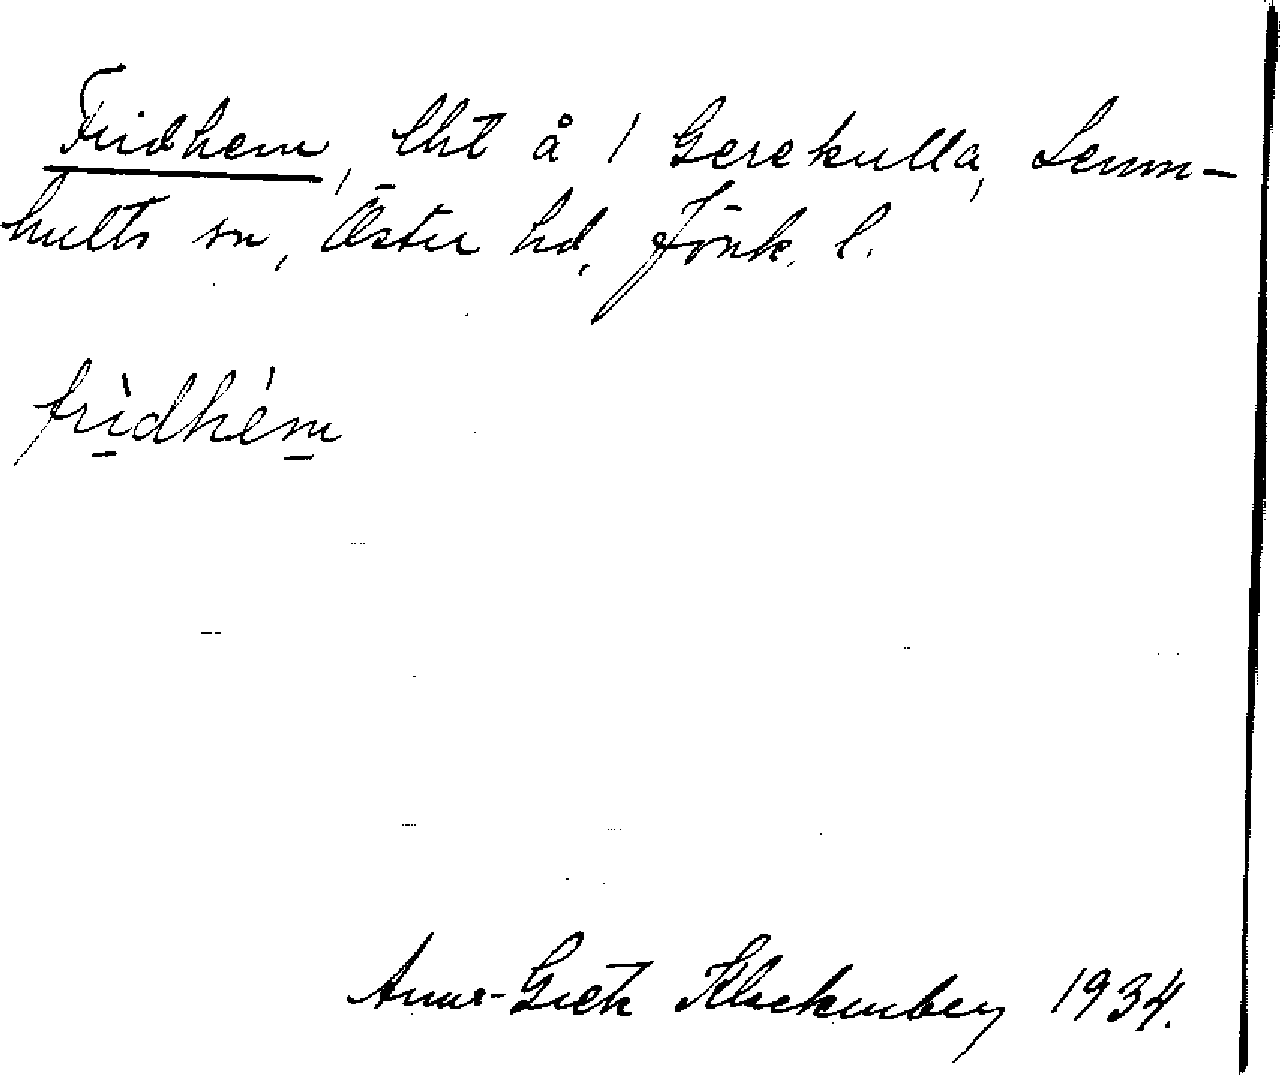 Fridhem, lht å 1 Gerekulla, Lemn-
hults sn, Öster hd, Jönk. l.
frìdhém
Anna-Greta Klockenberg 1934.